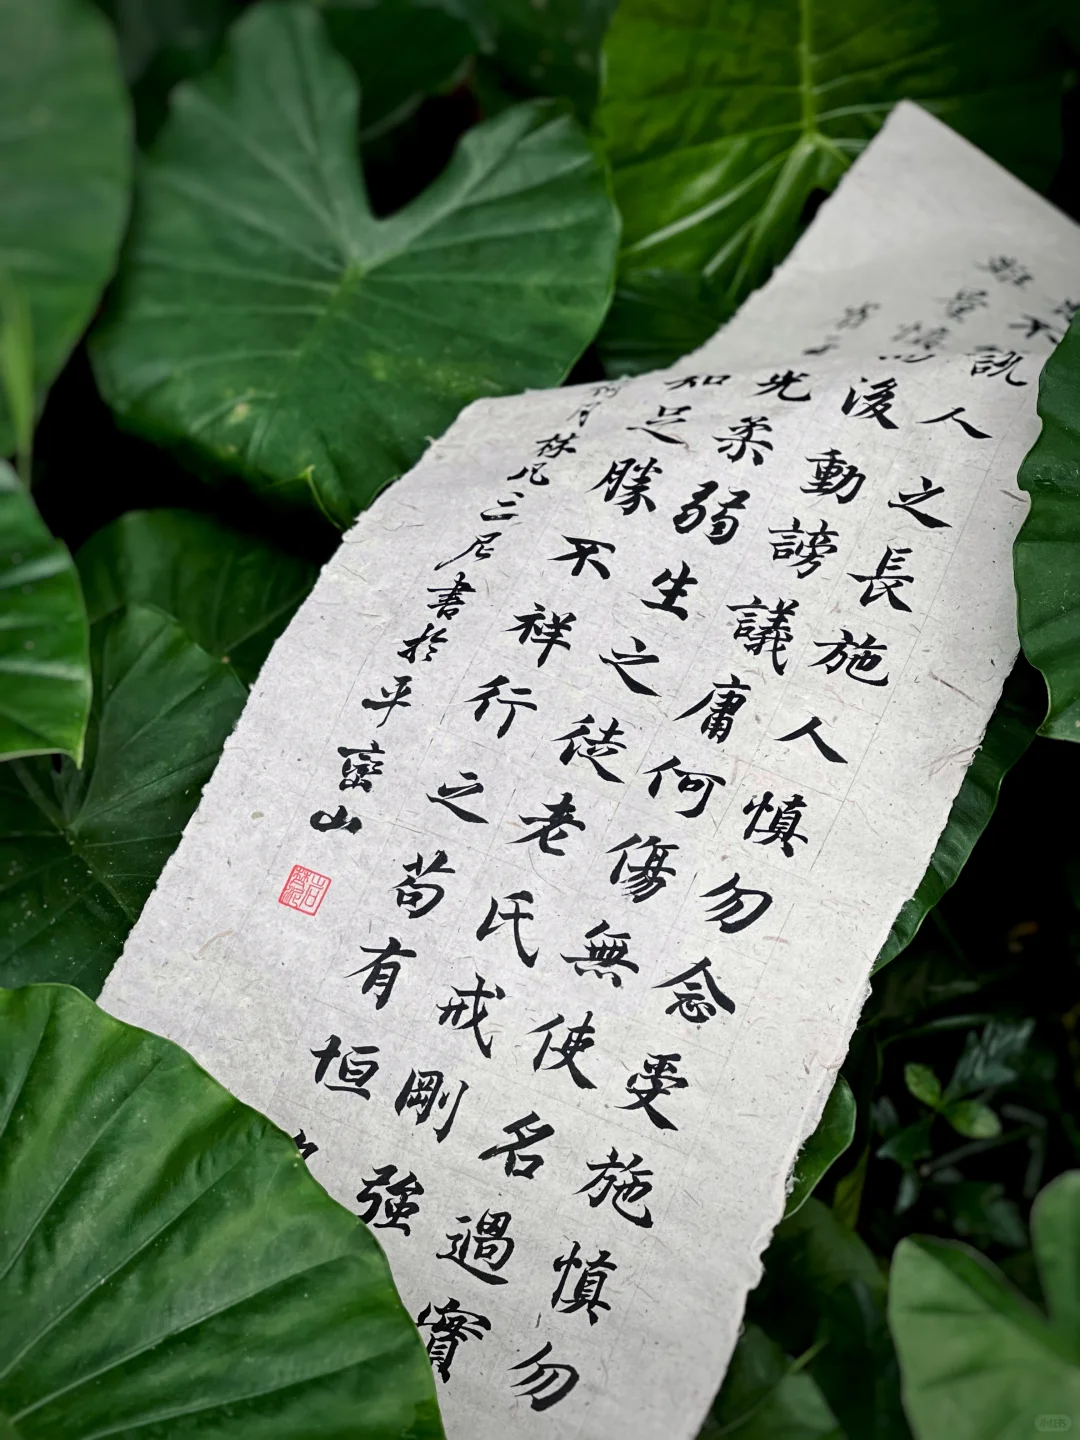 人之長施人慎勿念受施慎勿
後動謗議庸何傷無使名過實
光柔弱生之徒老氏戒剛強
知足勝不祥行之苟有恒
月林凡三尼書於平密山